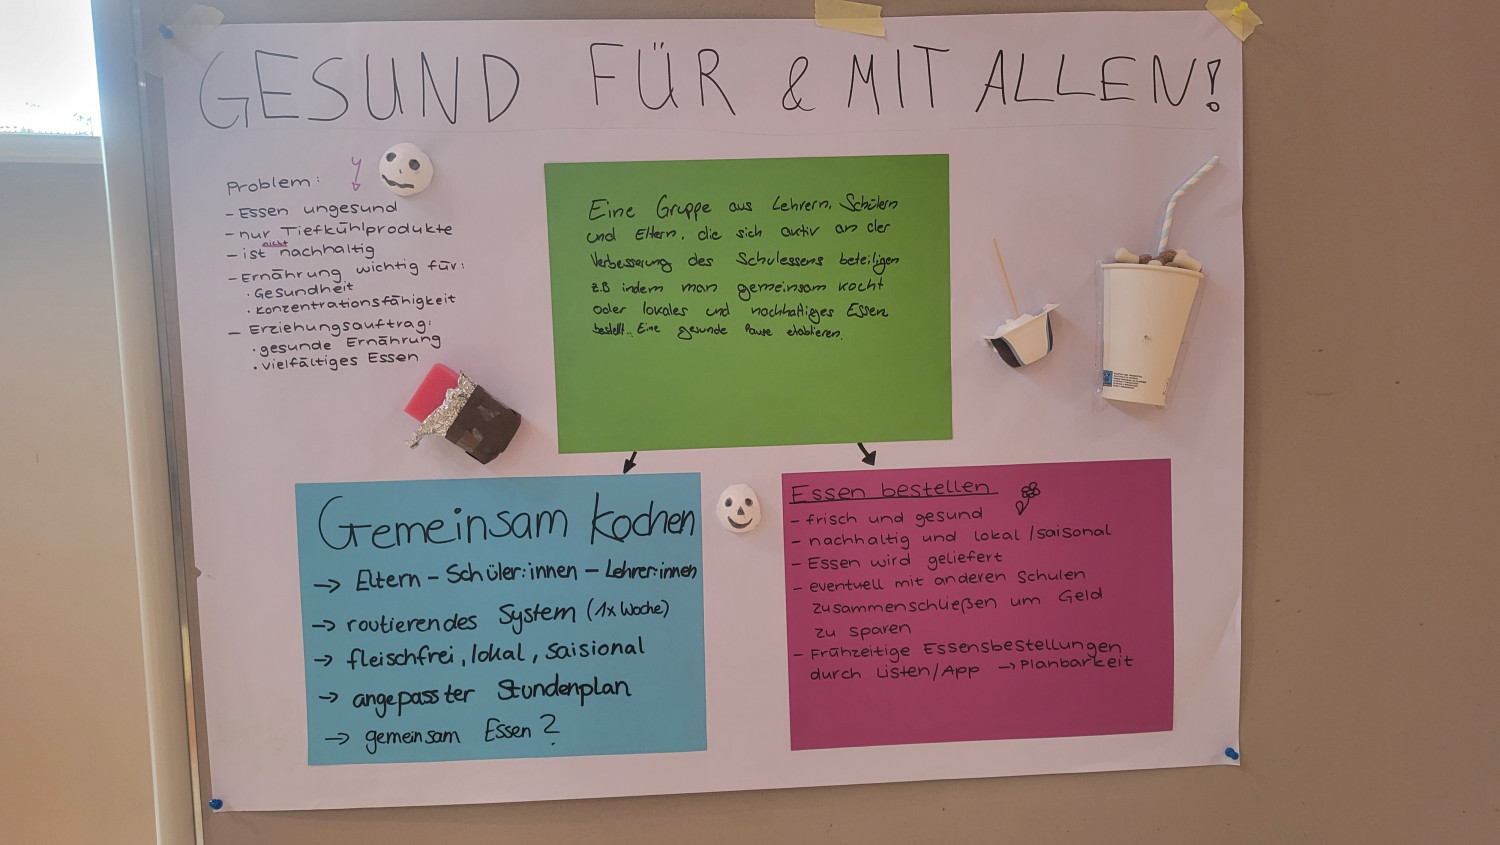 GESUND FÜR & MIT ALLEN!
Problem:
- Essen ungesund
- nur Tiefkühlprodukte
- ist nicht nachhaltig
- Ernährung wichtig für:
· Gesundheit
· Konzentrationsfähigkeit
- Erziehungsauftrag:
· gesunde Ernährung
· vielfältiges Essen
Eine Gruppe aus Lehrern, Schülern
und Eltern, die sich aktiv an der
Verbesserung des Schulessens beteiligen
z.B indem man gemeinsam kocht
oder lokales und nachhaltiges Essen
bestellt. Eine gesunde Pause etablieren.
Gemeinsam kochen
→ Eltern - Schüler:innen - Lehrer:innen
→ routierendes System (1x Woche)
→ fleischfrei, lokal, saisional
→ angepasster Stundenplan
→ gemeinsam Essen?
Essen bestellen
- frisch und gesund
- nachhaltig und lokal/saisonal
- Essen wird geliefert
- eventuell mit anderen Schulen
zusammenschließen um Geld
zu sparen
- Frühzeitige Essensbestellungen
durch Listen/App → Planbarkeit